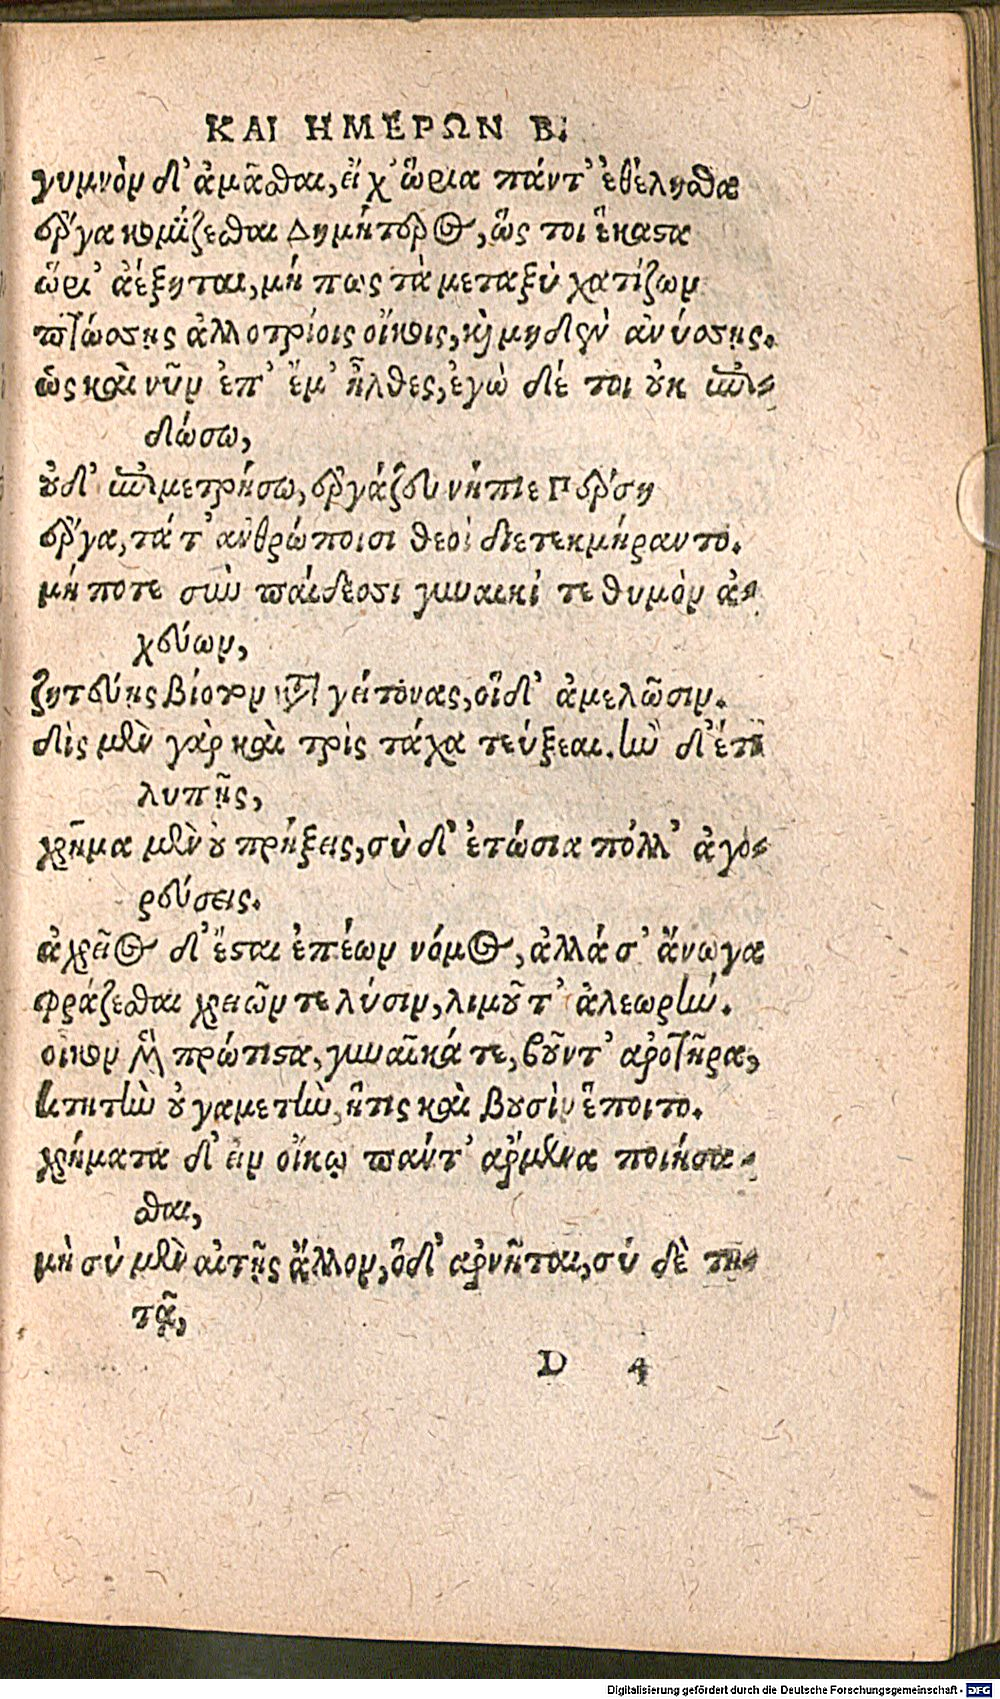 ΚΑΙ ΗΜΕΡΩΝ Β.
γυμνὸν δ' ἀμᾶσθαι, εἴ χ' ὥρια πάντ' ἐθέλῃσθα
ἔργα κομίζεσθαι Δημήτερος, ὥς τοι ἕκαστα
ὥρι' ἀέξηται, μή πως τὰ μεταξὺ χατίζων
πτώσσῃς ἀλλοτρίοις οἴκοις, καὶ μηδὲν ἀνύσσῃς.
ὡς καὶ νῦν ἐπ' ἔμ' ἦλθες, ἐγὼ δέ τοι οὐκ ἐπι-
δώσω,
οὐδ' ἐπιμετρήσω, ἐργάζευ νήπιε Πέρση
ἔργα, τά τ' ἀνθρώποισι θεοὶ διετεκμήραντο.
μή ποτε σὺν παίδεσσι γυναικί τε θυμὸν ἀ-
χεύων,
ζητεύῃς βίοτον κατὰ γείτονας, οἳ δ' ἀμελῶσιν.
δὶς μὲν γὰρ καὶ τρὶς τάχα τεύξεαι. ἢν δ' ἔτι
λυπῇς,
χρῆμα μὲν οὐ πρήξεις, σὺ δ' ἐτώσια πόλλ' ἀγο-
ρεύσεις.
ἀχρεῖος δ' ἔσται ἐπέων νόμος, ἀλλά σ' ἄνωγα
φράζεσθαι χρειῶν τε λύσιν, λιμοῦ τ' ἀλεωρήν.
οἶκον μὲν πρώτιστα, γυναῖκά τε, βοῦντ' ἀροτῆρα,
κτητὴν οὐ γαμετὴν, ἥτις καὶ βουσὶν ἕποιτο.
χρήματα δ' εἰν οἴκῳ πάντ' ἄρμενα ποιήσα-
σθαι,
μὴ σὺ μὲν αἰτῇς ἄλλον, ὃ δ' ἀρνῆται, σὺ δὲ τη-
τᾷ,
D 4
Digitalisierung gefördert durch die Deutsche Forschungsgemeinschaft - DFG